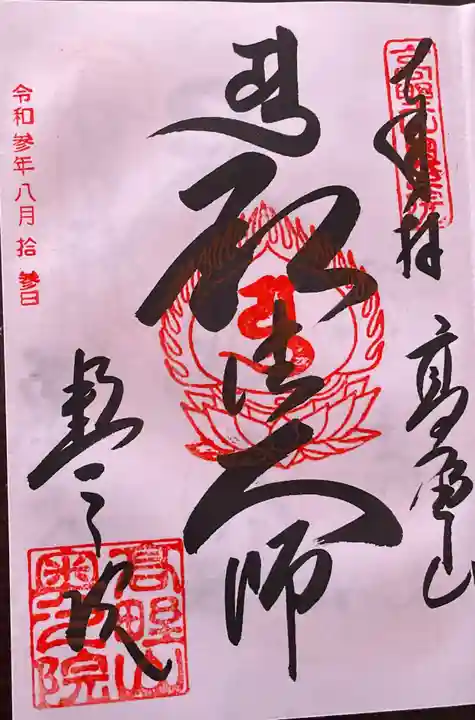 奉拝
高野山
弘法大師
奥之院
令和参年八月拾参日
高野山
奥之院